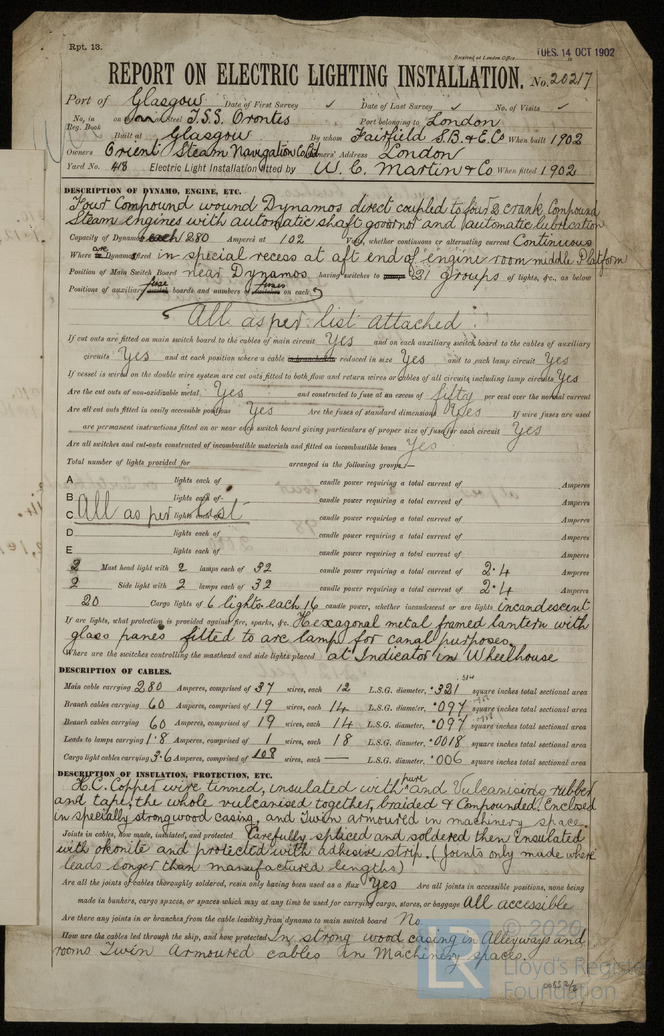 Rpt. 13.
Received at London Office
TUES. 14 OCT 1902
REPORT ON ELECTRIC LIGHTING INSTALLATION. No. 20217
Port of Glasgow Date of First Survey ✓ Date of Last Survey ✓ No. of Visits ✓
No. in Reg. Book on the Iron or Steel T.S.S. Orontes Port belonging to London
Built at Glasgow By whom Fairfield S.B. & E. Co When built 1902
Owners Orient Steam Navigation Co Ld Owners' Address London
Yard No. 418 Electric Light Installation fitted by W. C. Martin & Co When fitted 1902
DESCRIPTION OF DYNAMO, ENGINE, ETC.
Four Compound wound Dynamos direct coupled to four 2 crank Compound
Steam engines with automatic shaft governor and automatic lubrication
Capacity of Dynamo each 280 Amperes at 102 Volts, whether continuous or alternating current Continuous
Where are Dynamos fixed in special recess at aft end of engine room middle Platform
Position of Main Switch Board near Dynamos having switches to groups 21 groups of lights, &c., as below
Positions of auxiliary fuse boards and numbers of fuses on each
All as per list attached
If cut outs are fitted on main switch board to the cables of main circuit Yes and on each auxiliary switch board to the cables of auxiliary
circuits Yes and at each position where a cable is branched or reduced in size Yes and to each lamp circuit Yes
If vessel is wired on the double wire system are cut outs fitted to both flow and return wires or cables of all circuits including lamp circuits Yes
Are the cut outs of non-oxidizable metal Yes and constructed to fuse at an excess of fifty per cent over the normal current
Are all cut outs fitted in easily accessible positions Yes Are the fuses of standard dimensions Yes If wire fuses are used
are permanent instructions fitted on or near each switch board giving particulars of proper size of fuse for each circuit Yes
Are all switches and cut-outs constructed of incombustible materials and fitted on incombustible bases Yes
Total number of lights provided for arranged in the following groups:—
A lights each of candle power requiring a total current of Amperes
B lights each of candle power requiring a total current of Amperes
C All as per list lights each of candle power requiring a total current of Amperes
D lights each of candle power requiring a total current of Amperes
E lights each of candle power requiring a total current of Amperes
2 Mast head light with 2 lamps each of 32 candle power requiring a total current of 2.4 Amperes
2 Side light with 2 lamps each of 32 candle power requiring a total current of 2.4 Amperes
20 Cargo lights of 6 lights each 16 candle power, whether incandescent or arc lights incandescent
If arc lights, what protection is provided against fire, sparks, &c. Hexagonal metal framed lantern with
glass panes fitted to arc lamp for canal purposes.
Where are the switches controlling the masthead and side lights placed at Indicator in Wheelhouse
DESCRIPTION OF CABLES.
Main cable carrying 280 Amperes, comprised of 37 wires, each 12 L.S.G. diameter, .321 square inches total sectional area
Branch cables carrying 60 Amperes, comprised of 19 wires, each 14 L.S.G. diameter, .097 square inches total sectional area
Branch cables carrying 60 Amperes, comprised of 19 wires, each 14 L.S.G. diameter, .097 square inches total sectional area
Leads to lamps carrying 1.8 Amperes, comprised of 1 wires, each 18 L.S.G. diameter, .0018 square inches total sectional area
Cargo light cables carrying 3.6 Amperes, comprised of 108 wires, each — L.S.G. diameter, .006 square inches total sectional area
DESCRIPTION OF INSULATION, PROTECTION, ETC.
H.C. Copper wire tinned, insulated with pure and Vulcanising rubber
and tape, the whole vulcanised together, braided & Compounded. Enclosed
in specially strong wood casing, and Twin armoured in machinery space.
Joints in cables, how made, insulated, and protected Carefully spliced and soldered then insulated
with okonite and protected with adhesive strip. (Joints only made where
leads longer than manufactured lengths)
Are all the joints of cables thoroughly soldered, resin only having been used as a flux Yes Are all joints in accessible positions, none being
made in bunkers, cargo spaces, or spaces which may at any time be used for carrying cargo, stores, or baggage All accessible
Are there any joints in or branches from the cable leading from dynamo to main switch board No.
How are the cables led through the ship, and how protected In strong wood casing in Alleyways and
rooms Twin Armoured cables in Machinery spaces.
LR © 2020
Lloyd's Register
Foundation